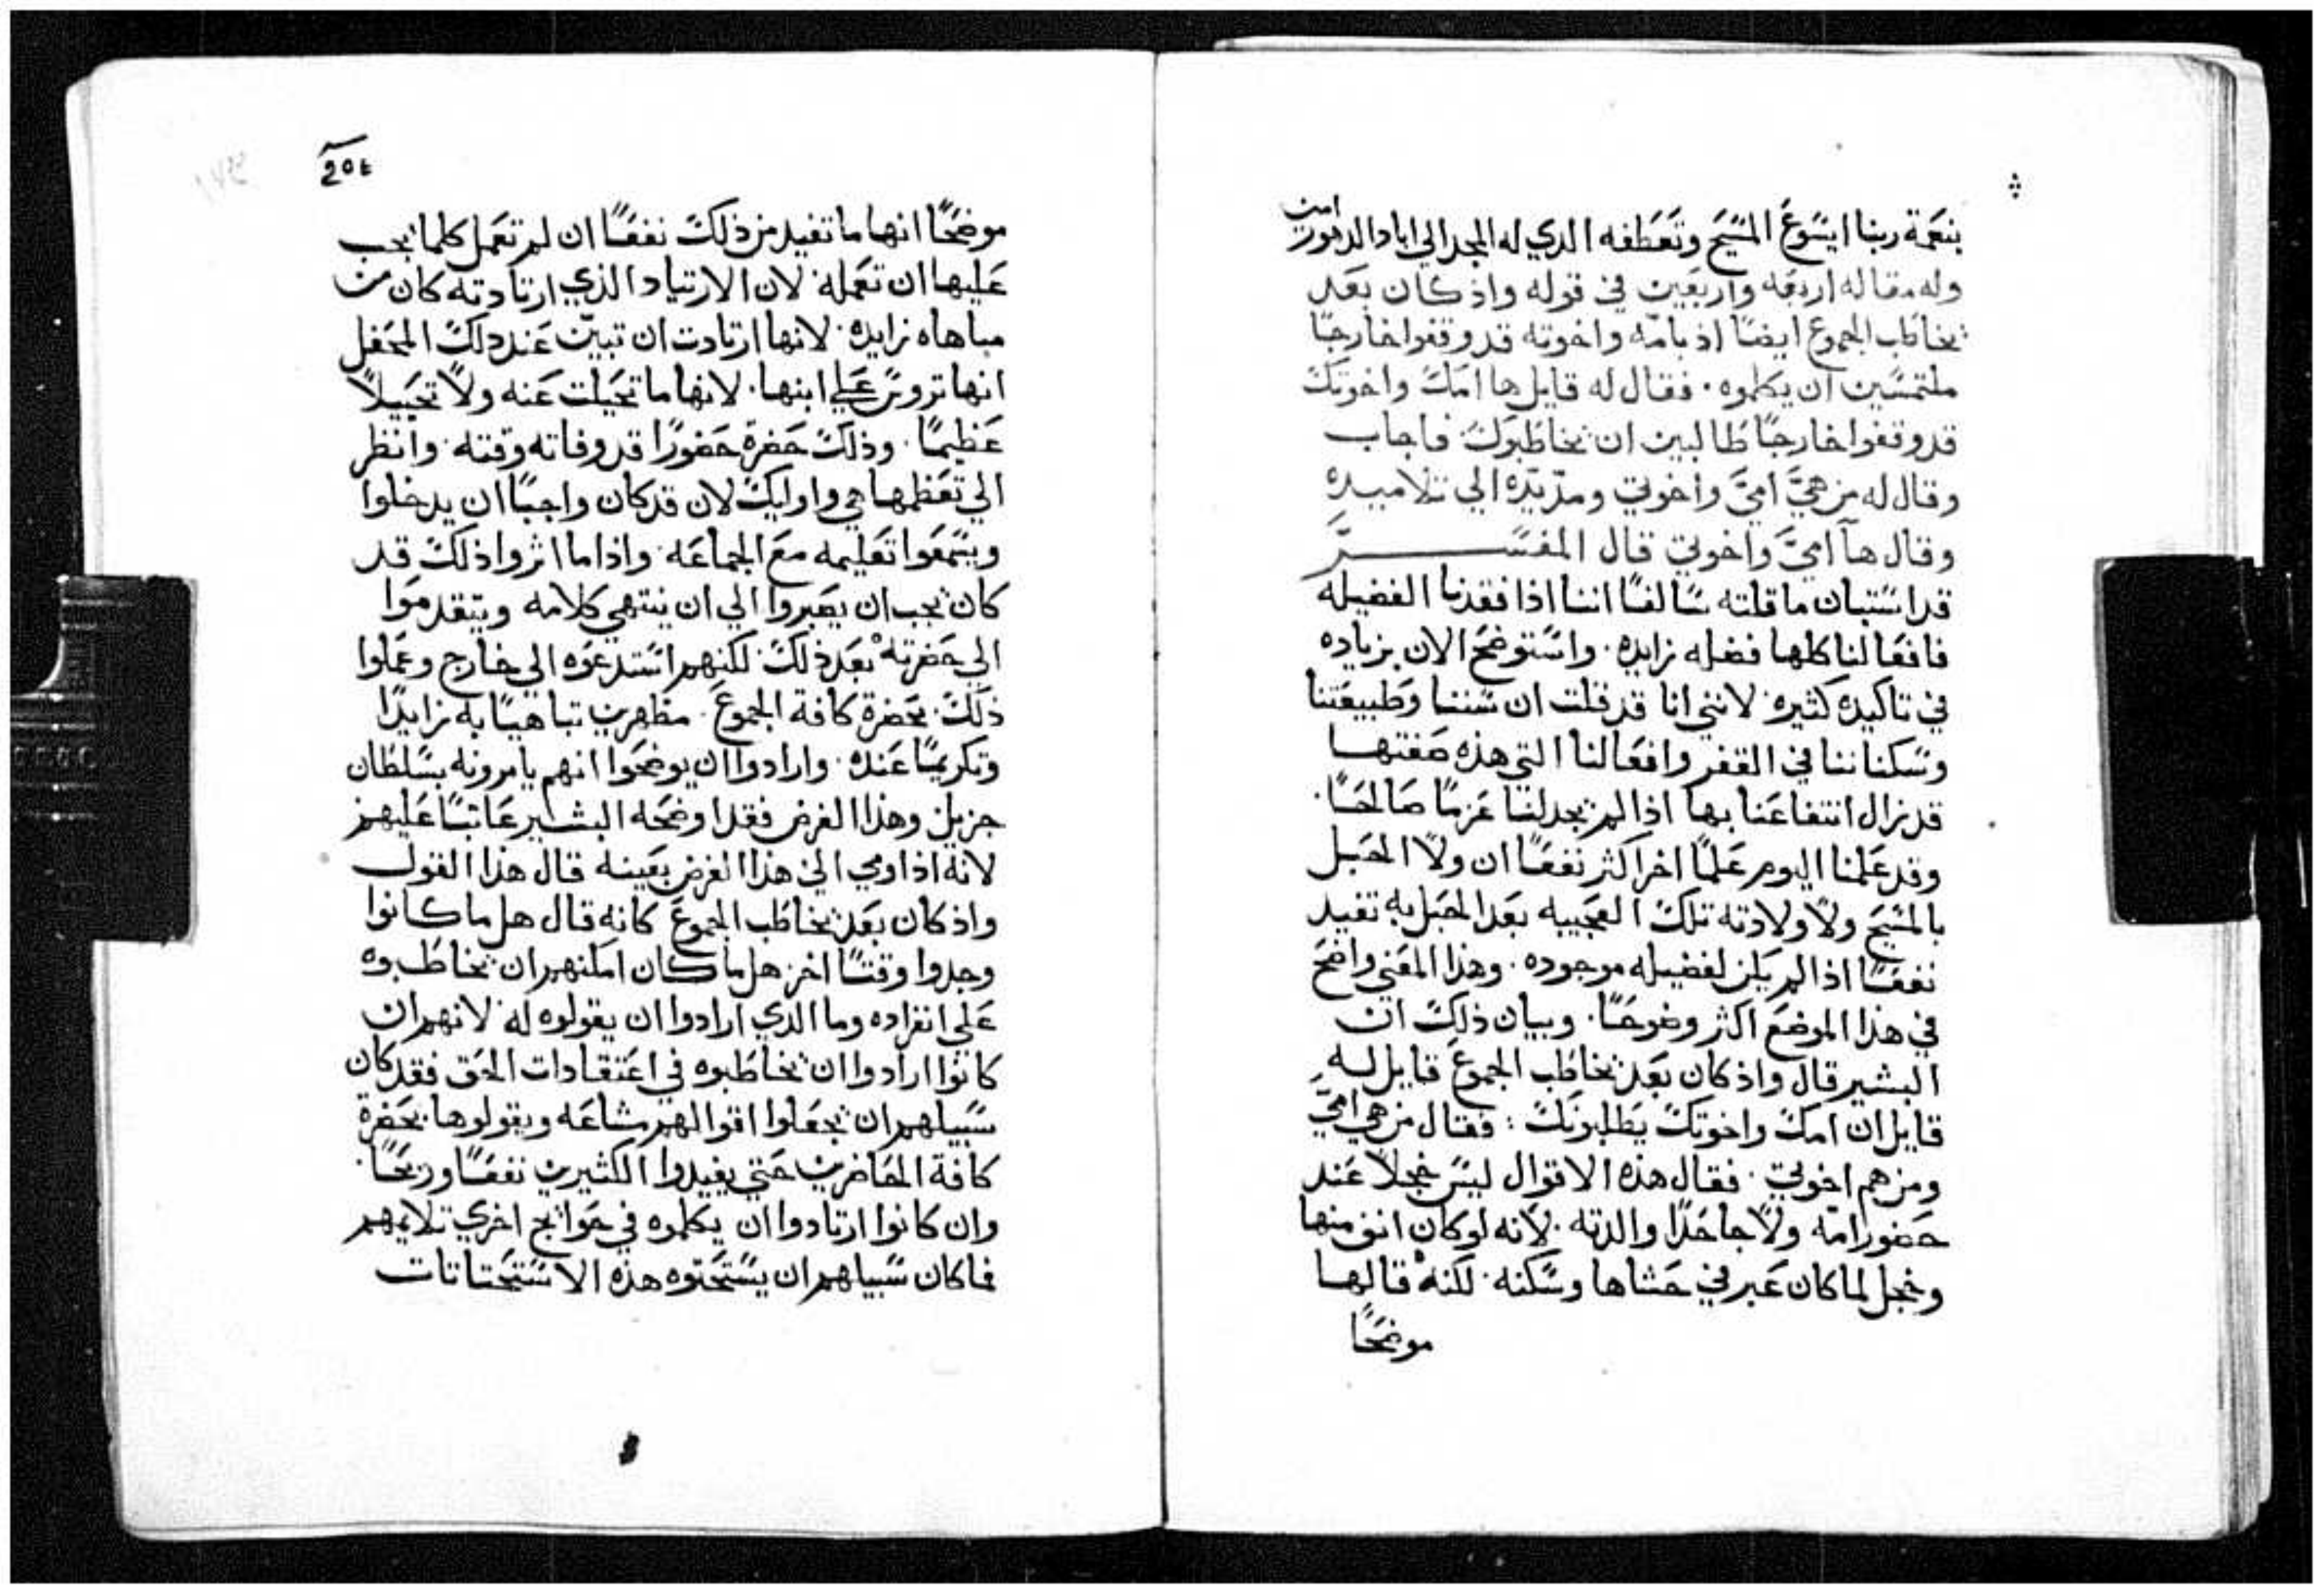 بنعمة ربنا ايسوع المسيح وتعطفه الدي له المجد الي اباد الدهور امين
وله مقاله اربعه واربعين في قوله واذ كان بعد
يخاطب الجموع ايضًا اذ بامه واخوته قد وقفوا خارجًا
ملتمسين ان يكلموه. فقال له قايل ها امك واخوتك
قد وقفوا خارجًا طالبين ان يخاطبوك فاجاب
وقال له من هيَّ اميَّ واخوتي ومدّ يدّه الي تلاميده
وقال هآ اميَّ واخوتي قال المفسر
قد استبان ما قلته سالفًا اننا اذا فقدنا الفضيله
فافعالنا كلها فضله زايده. واستوضح الان بزياده
في تاكيده كثيره لانني انا قد قلت ان سننا وطبيعتنا
وسكناننا في القفر وافعالنا التي هذه صفتها
قد يزال انتفاعنا بها اذا لم يجد لنا عزمًا صالحًا.
وقد علمنا اليوم علمًا اخر اكثر نفعًا ان ولا الحبل
بالمسيح ولا ولادته تلك العجيبه بعد الحبل به تفيد
نفعًا اذا لم يكن لفضيله موجوده. وهذا المعني واضح
في هذا الموضع اكثر وضوحًا. وبيان ذلك ان
البشير قال واذ كان بعد يخاطب الجموع قايل له
قايل ان امك واخوتك يطلبونك: فقال من هي اميَّ
ومن هم اخوتي. فقال هذه الاقوال ليس خجلاً عند
حضور امه ولا جاحدًا والدته. لانه لو كان انف منها
وخجل لما كان عبر في حشاها وسكنه. لكنه قالها
موضحًا
20٤
موضحًا انها ما تفيد من ذلك نفعًا ان لم تعمل كلما يجب
عليها ان تعمله. لان الارتياد الذي ارتادته كان من
مباهاه زايده. لانها ارتادت ان تبين عند دلك المحفل
انها تروس علي ابنها. لانها ما تخيلت عنه ولا تخييلاً
عظيمًا. وذلك حضرة حضورًا قد وفاته وقته. وانظر
الي تعظمها هي واوليك لان قد كان واجبًا ان يدخلوا
ويسمعوا تعليمه مع الجماعه. واذا ما اثروا ذلك قد
كان يجب ان يصبروا الي ان ينتهي كلامه ويتقدموا
الي حضرته بعد ذلك. لكنهم استدعوه الي خارج وعملوا
ذلك. بحضرة كافة الجموع. مظهرين تباهيًا به زايدًا
وتكريمًا عنده. وارادوا ان يوضحوا انهم يامرونه بسلطان
جزيل وهذا الغرض فقد اوضحه البشير عاتبًا عليهم
لانه اذ اومي الي هذا الغرض بعينه قال هذا القول
واذ كان بعد يخاطب الجموع كانه قال هل ما كانوا
وجدوا وقتًا اخر هل ما كان امكنهم ان يخاطبوه
علي انفراده وما الذي ارادوا ان يقولوه له لانهم ان
كانوا ارادوا ان يخاطبوه في اعتقادات الحق فقد كان
سبيلهم ان يجعلوا اقوالهم مشاعه ويقولوها بحضرة
كافة الحاضرين حتي يفيدوا الكثيرين نفعًا وربحًا.
وان كانوا ارتادوا ان يكلموه في حوايج اخري تلايمهم
فما كان سبيلهم ان يستحثوه هذه الاستحثاثات